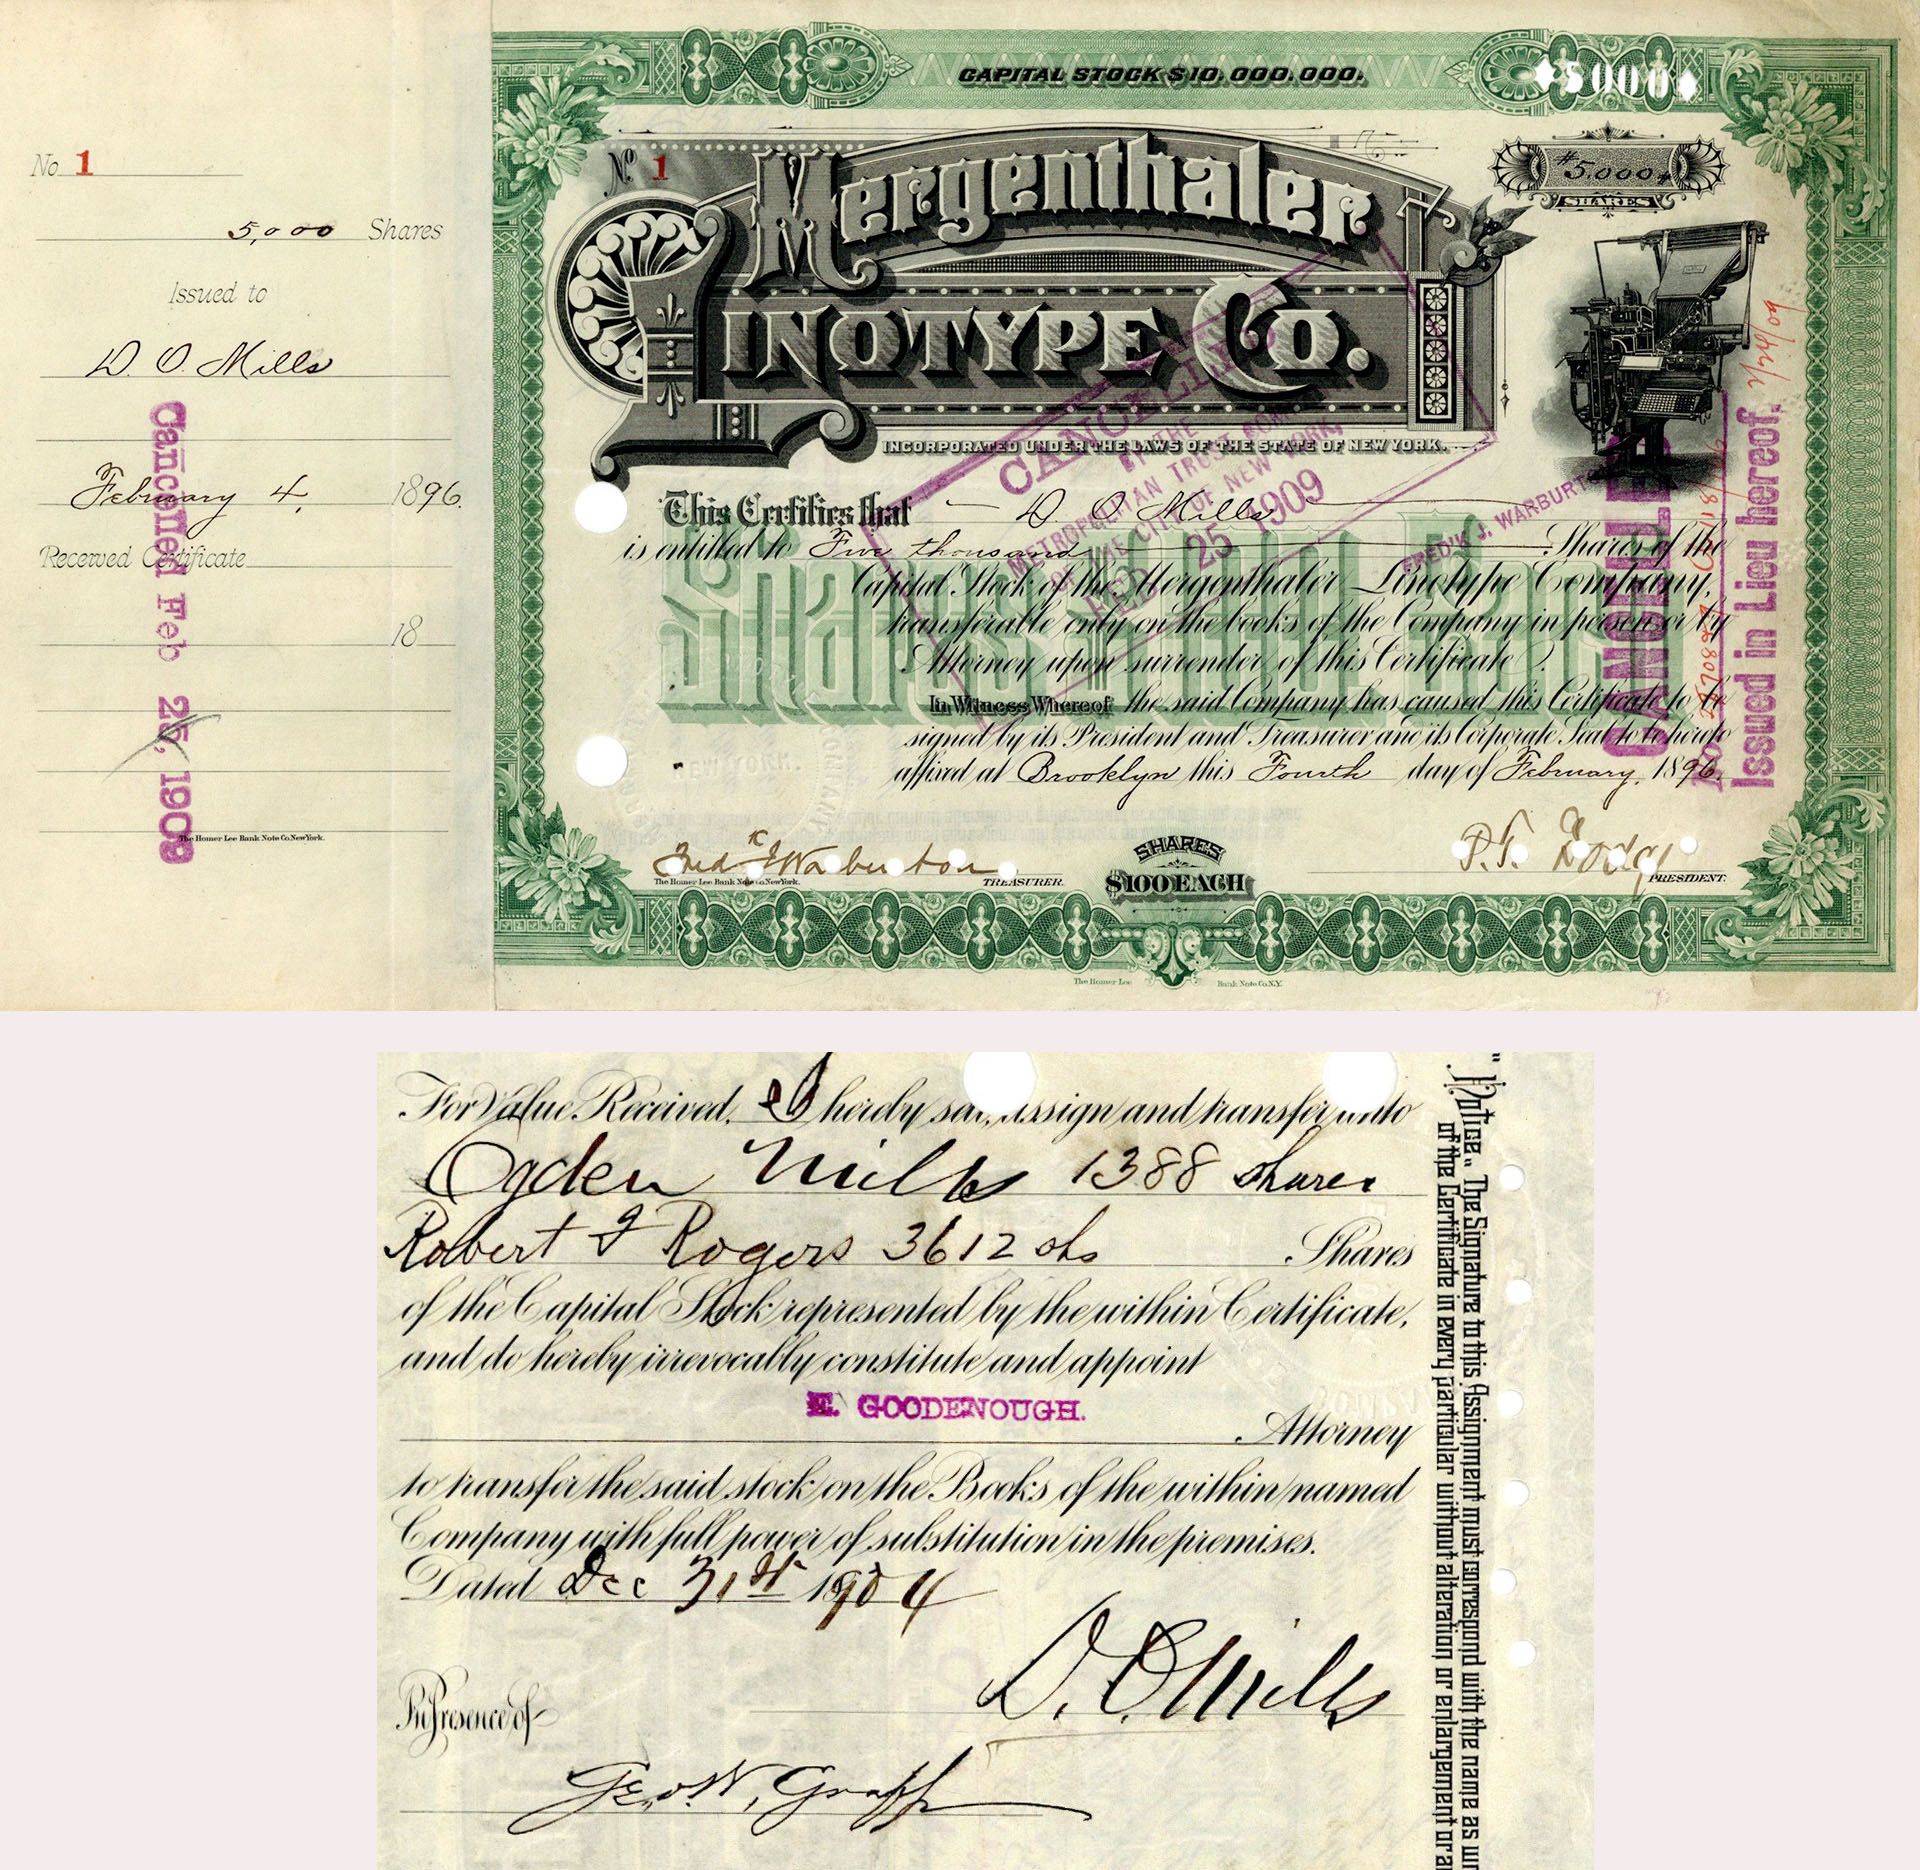 No 1
5,000 Shares
Issued to
D. O. Mills
February 4, 1896.
Received Certificate
18
Cancelled Feb 25, 1909
The Homer Lee Bank Note Co. New York.
CAPITAL STOCK $10.000.000.
5000
No. 1
Mergenthaler
LINOTYPE CO.
#5.000
SHARES
INCORPORATED UNDER THE LAWS OF THE STATE OF NEW YORK.
This Certifies that D. O. Mills
is entitled to Five thousand Shares of the
Capital Stock of the Mergenthaler Linotype Company,
transferable only on the books of the Company in person or by
Attorney upon surrender of this Certificate.
In Witness Whereof the said Company has caused this Certificate to be
signed by its President and Treasurer and its Corporate Seal to be hereto
affixed at Brooklyn this Fourth day of February, 1896.
Shares $100 Each
CANCELLED
BY THE
METROPOLITAN TRUST COMPANY
OF THE CITY OF NEW YORK,
FEB 25 1909
FRED'K J. WARBURTON
CANCELLED
Issued in Lieu hereof.
Fredk J Warburton
The Homer Lee Bank Note Co. New York.
TREASURER.
SHARES
$100 EACH
P. T. Dodge
PRESIDENT.
The Homer Lee Bank Note Co. N.Y.
For Value Received, I hereby sell, assign and transfer unto
Ogden Mills 1388 shares
Robert J Rogers 3612 shs Shares
of the Capital Stock represented by the within Certificate,
and do hereby irrevocably constitute and appoint
E. GOODENOUGH.
Attorney
to transfer the said stock on the Books of the within named
Company with full power of substitution in the premises.
Dated Dec 31st 1904
D. O. Mills
In Presence of
Geo. W. Graff
Notice. The Signature to this Assignment must correspond with the name as
of the Certificate in every particular without alteration or enlargement or